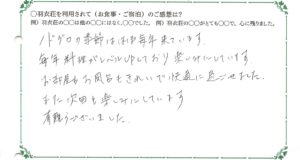 ○羽衣荘を利用されて（お食事・ご宿泊）のご感想は？
例）羽衣荘の○○は他の○○にはなく、○○でした。例）羽衣荘の○○がとても○○で、心に残りました。
ノドグロの季節はほぼ毎年来ています。
毎年料理がレベルUPしており楽しみにしています
お部屋もお風呂もきれいで快適に過ごせました。
また次回も楽しみにしています
有難うございました。